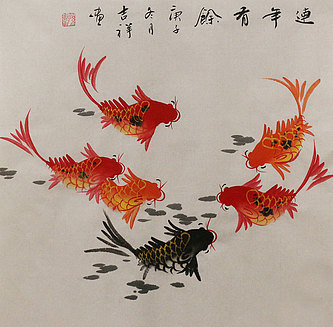 連年有餘
庚子
冬月
吉祥